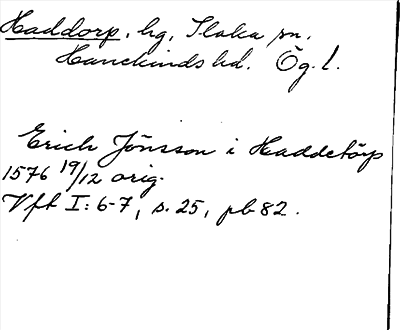 Haddorp, hg, Slaka sn.
Hanekinds hd. Ög. l.
Erich Jönsson i Haddetörp
1576 19/12 orig.
Vft I: 6-7, s. 25, pb 82.